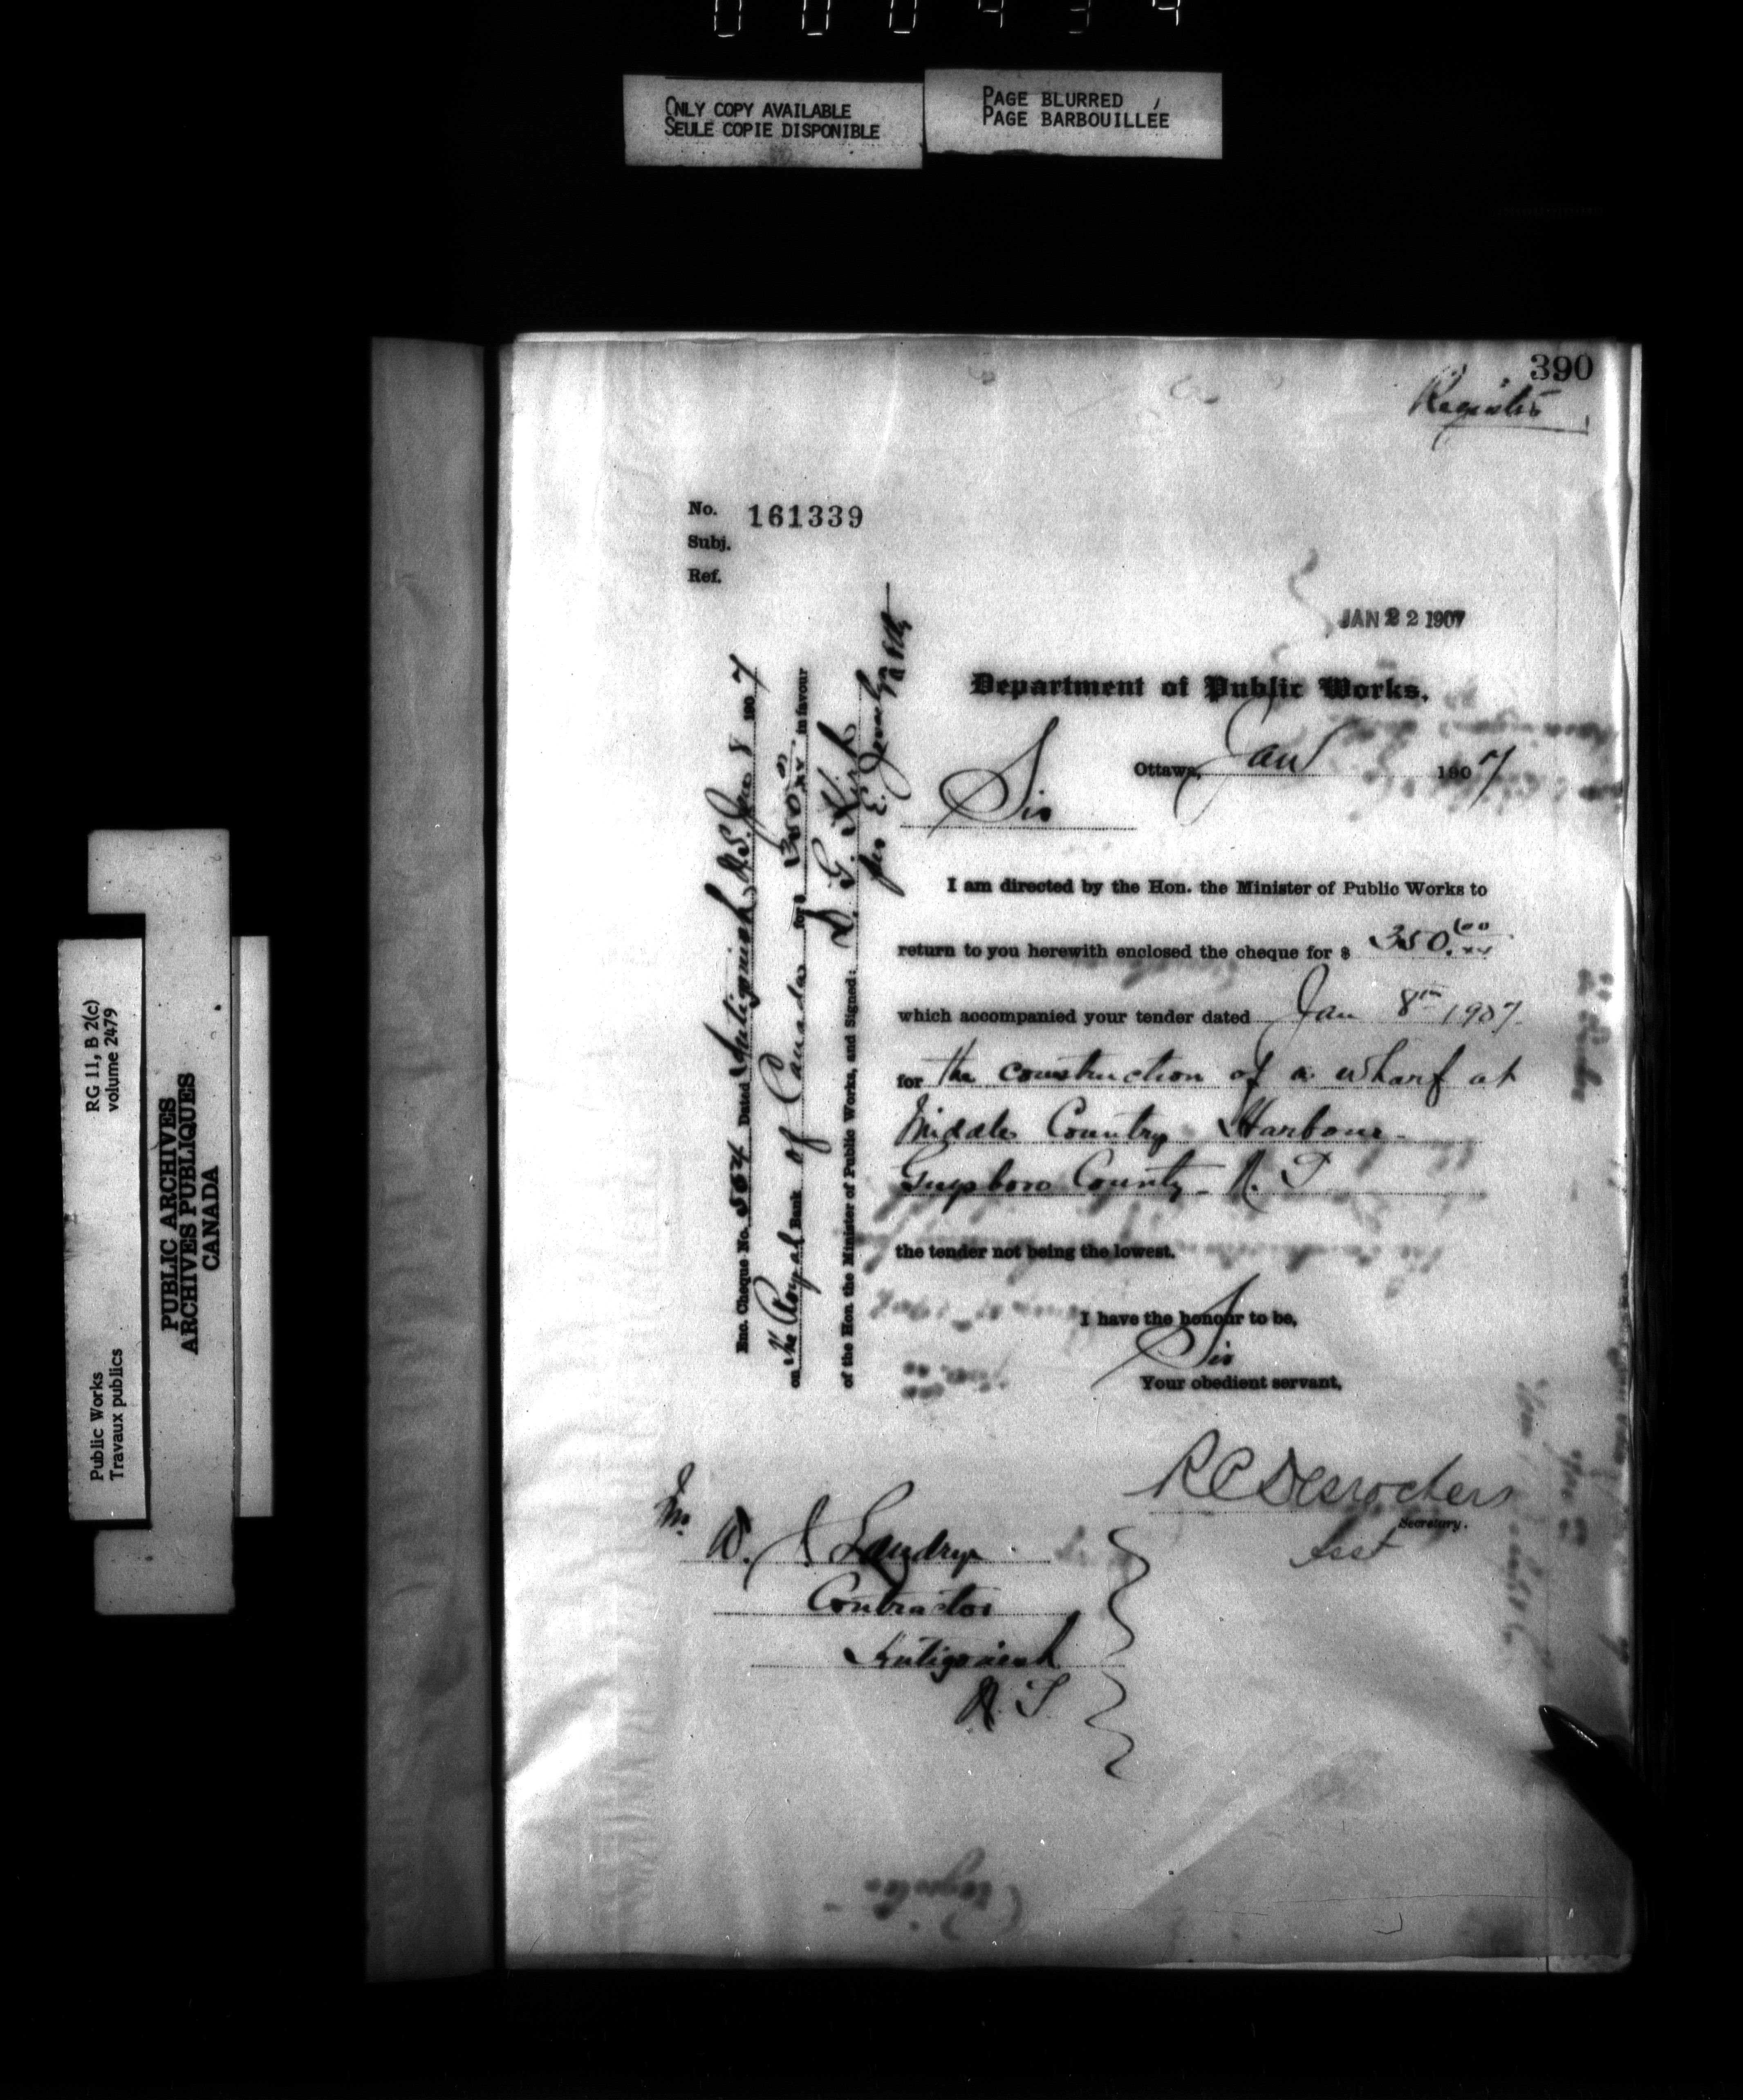 000434
ONLY COPY AVAILABLE
SEULE COPIE DISPONIBLE
PAGE BLURRED
PAGE BARBOUILLÉE
390
Register
No. 161339
Subj.
Ref.
JAN 22 1907
Department of Public Works.
Ottawa, Jan 1907
Sir
I am directed by the Hon. the Minister of Public Works to
return to you herewith enclosed the cheque for $ 350.00/xx
which accompanied your tender dated Jan 8th 1907.
for the construction of a wharf at
Middle Country Harbour
Guysboro County N. S
the tender not being the lowest.
I have the honour to be,
Sir
Your obedient servant,
RC Desrochers
Secretary.
Asst
Mr
W. J. Landry
Contractor
Antigonish
N. S.
Enc. Cheque No. 564 Dated Antigonish N.S. Jan 8 1907
on the Royal Bank of Canada for $ 350.00/xx in favour
of the Hon. the Minister of Public Works, and Signed: D. G. Kirk
per E.
Public Works
Travaux publics
RG 11, B 2(c)
volume 2479
PUBLIC ARCHIVES
ARCHIVES PUBLIQUES
CANADA